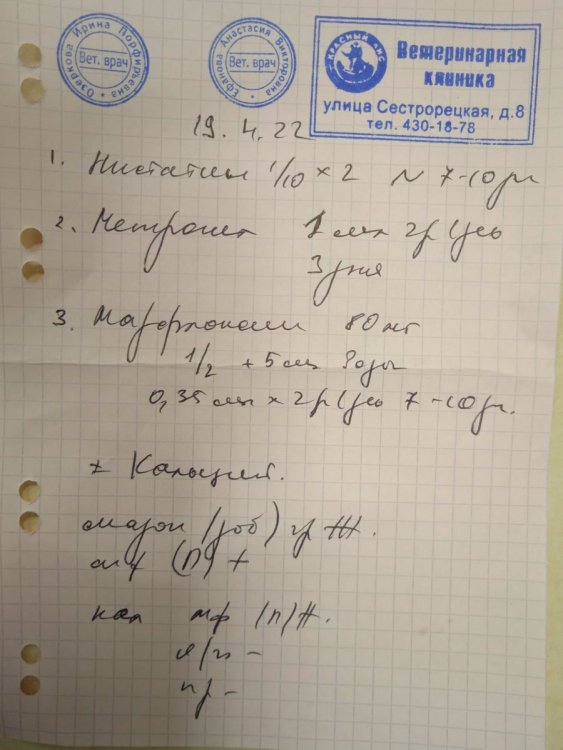 Озеркова Ирина Порфирьевна
Вет. врач
Ефанова Анастасия Викторовна
Вет. врач
КРАСНЫЙ ПЕС
Ветеринарная
клиника
улица Сестрорецкая, д.8
тел. 430-18-78
19.4.22
1. Нистатин 1/10 × 2 N 7-10 дн
2. 1 мл 2р/день
3 дня
3. Марфлоксин 80 мг
1/2 + 5 мл воды
0,35 мл × 2р/день 7-10 дн.
+ Кальций.
мазок (зоб) гр +++.
м/ф (п) +
кал мф (п) ++.
я/г -
пр -